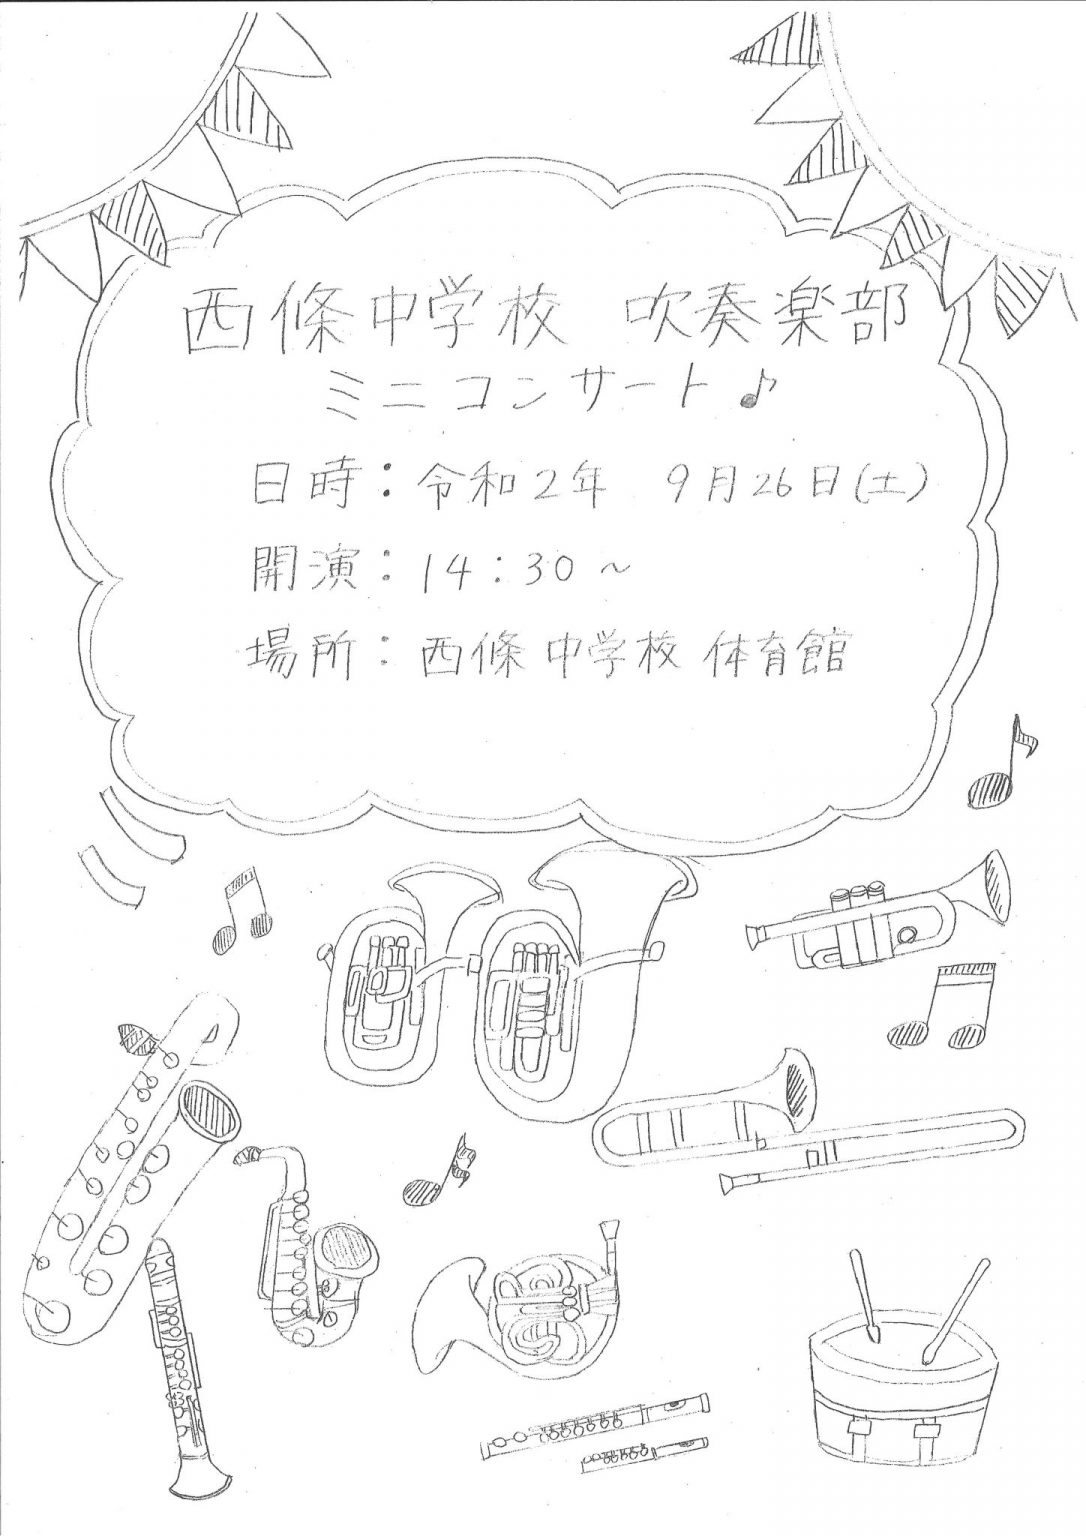 西條中学校 吹奏楽部
ミニコンサート♪
日時：令和2年 9月26日(土)
開演：14：30～
場所：西條中学校 体育館